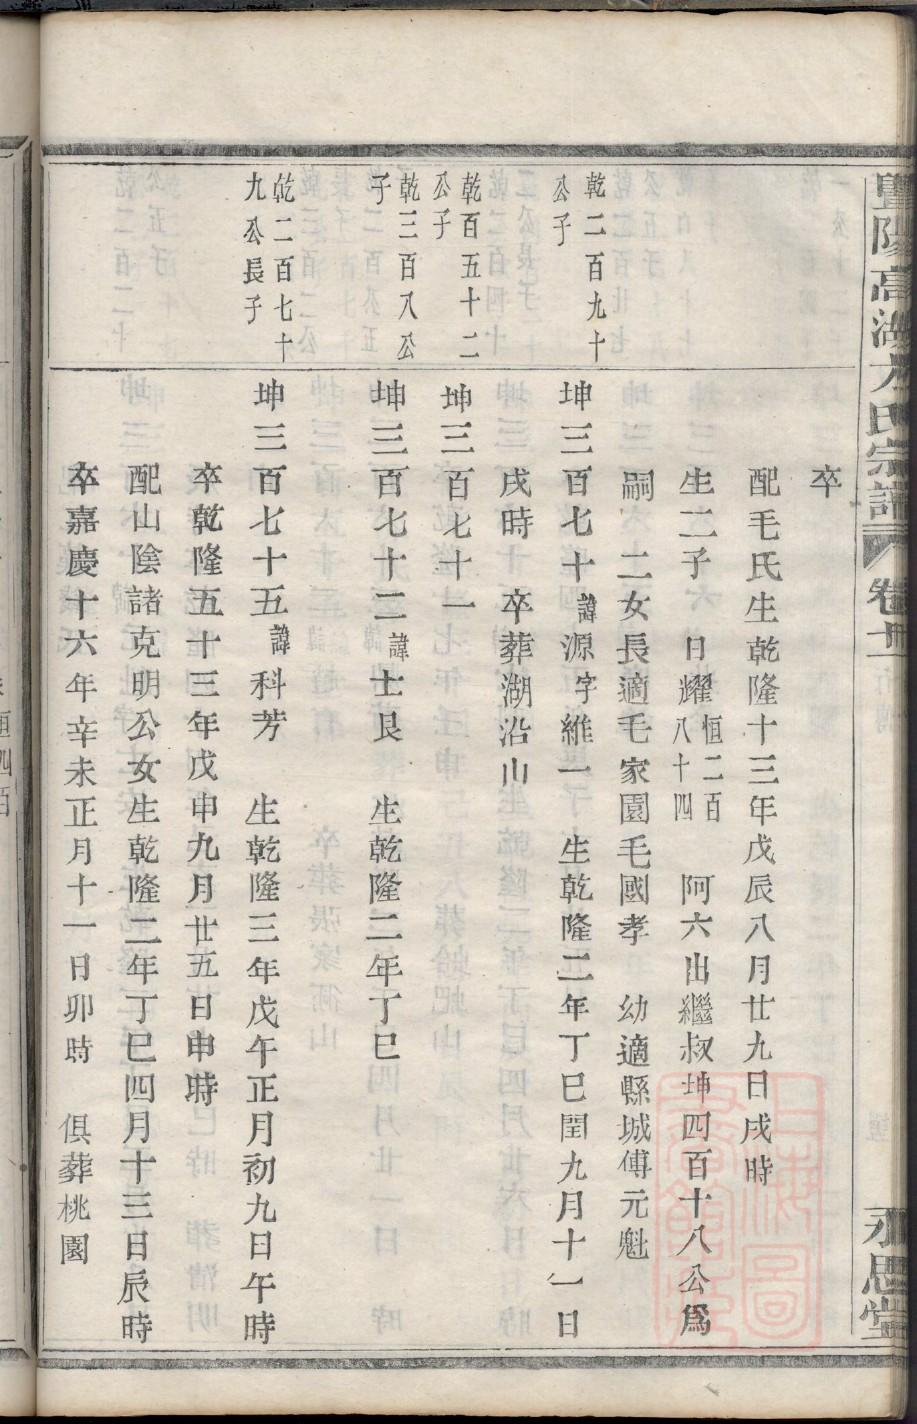 暨陽高湖方氏宗譜 卷十三 永思堂
卒
配毛氏生乾隆十三年戊辰八月廿九日戌時
生二子 日耀恒二百八十四 阿六出繼叔坤四百十八公爲
嗣 二女長適毛家園毛國孝 幼適縣城傅元魁
乾二百九十公子
坤三百七十諱源字維一 生乾隆二年丁巳閏九月十一日
戌時 卒葬湖沿山
乾百五十二公子
坤三百七十一
乾三百八公子
坤三百七十二諱士良 生乾隆二年丁巳
乾二百七十九公長子
坤三百七十五諱科芳 生乾隆三年戊午正月初九日午時
卒乾隆五十三年戊申九月廿五日申時
配山陰諸克明公女生乾隆二年丁巳四月十三日辰時
卒嘉慶十六年辛未正月十一日卯時 俱葬桃園